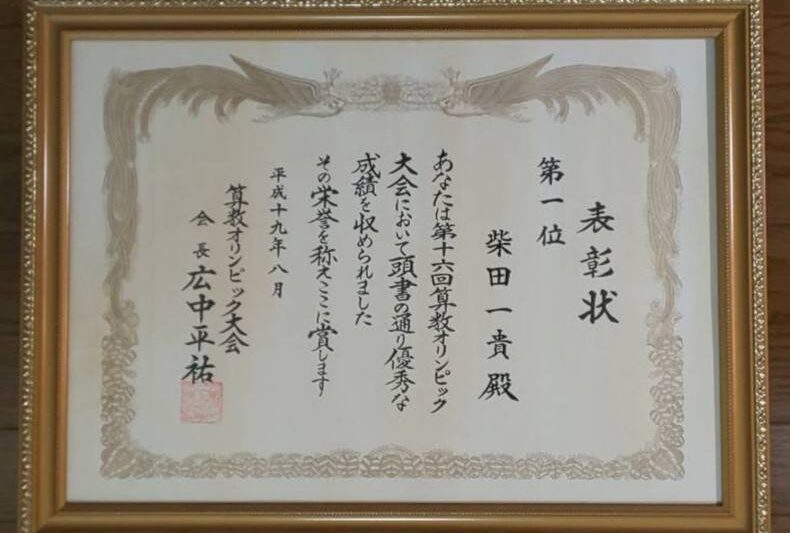 表彰状
第一位
柴田一貴殿
あなたは第十六回算数オリンピック
大会において頭書の通り優秀な
成績を収められました
その栄誉を称えここに賞します
平成十九年八月
算数オリンピック大会
会長 広中平祐